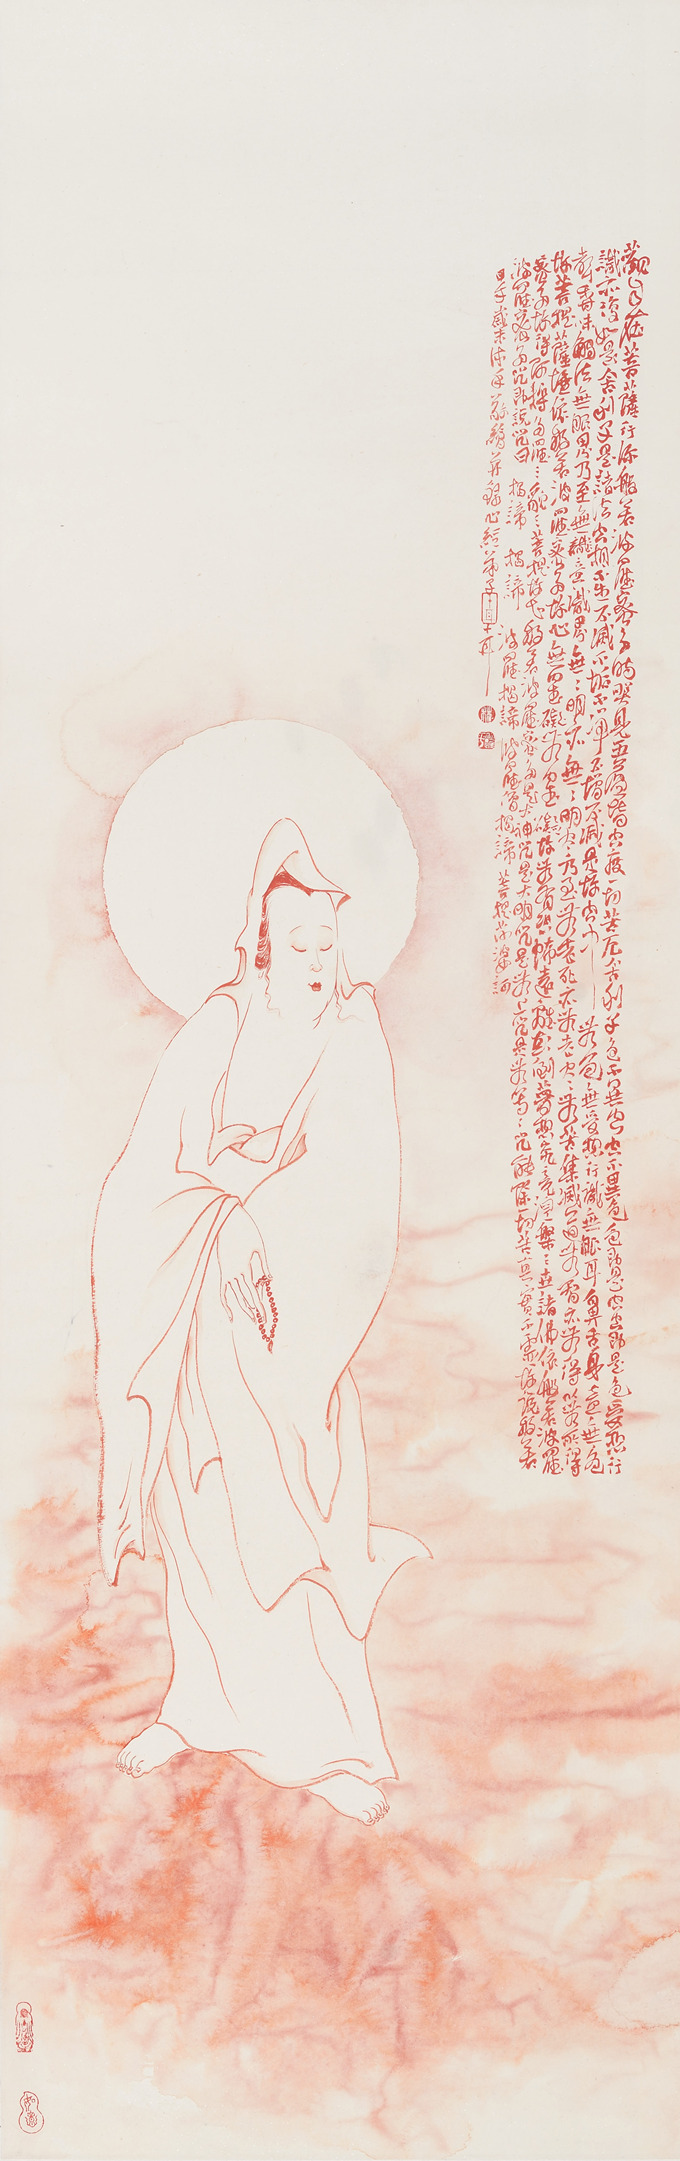 觀自在菩薩行深般若波羅蜜多時照見五蘊皆空度一切苦厄舍利子色不異空空不異色色即是空空即是色受想行
識亦復如是舍利子是諸法空相不生不滅不垢不淨不增不減是故空中無色無受想行識無眼耳鼻舌身意無色
聲香味觸法無眼界乃至無意識界無無明亦無無明盡乃至無老死亦無老死盡無苦集滅道無智亦無得以無所得
故菩提薩埵依般若波羅蜜多故心無罣礙無罣礙故無有恐怖遠離顛倒夢想究竟涅槃三世諸佛依般若波羅
蜜多故得阿耨多羅三藐三菩提故知般若波羅蜜多是大神咒是大明咒是無上咒是無等等咒能除一切苦真實不虛故說般若
波羅蜜多咒即說咒曰 揭諦 揭諦 波羅揭諦 波羅僧揭諦 菩提薩婆訶
歲末沐手敬繪并錄心經弟子